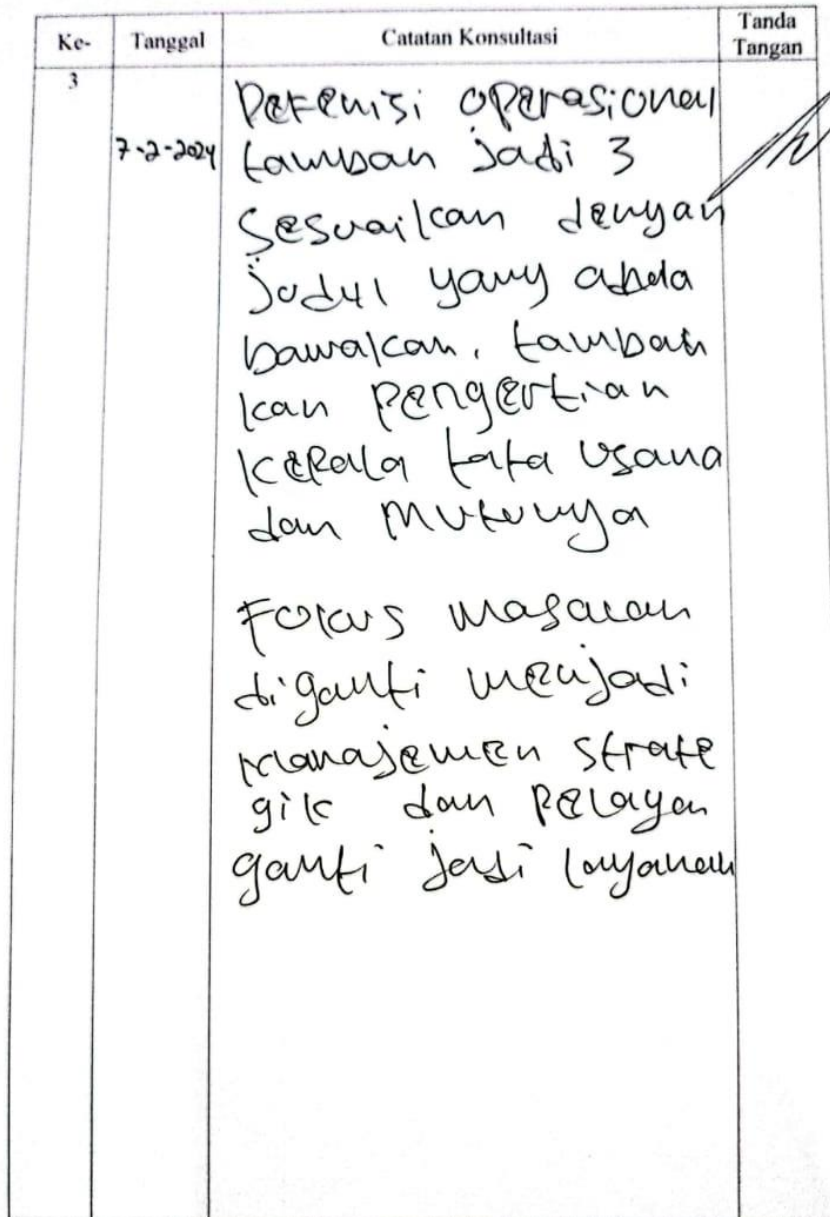 Ke- Tanggal Catatan Konsultasi Tanda Tangan
3
7-2-2024
Defenisi operasional
tambah jadi 3
Sesuaikan dengan
judul yang anda
bawakan, tambah
kan pengertian
kepala tata usaha
dan mutunya
Fokus masalah
diganti menjadi
Manajemen strate
gik dan Pelayan
ganti jadi layanan